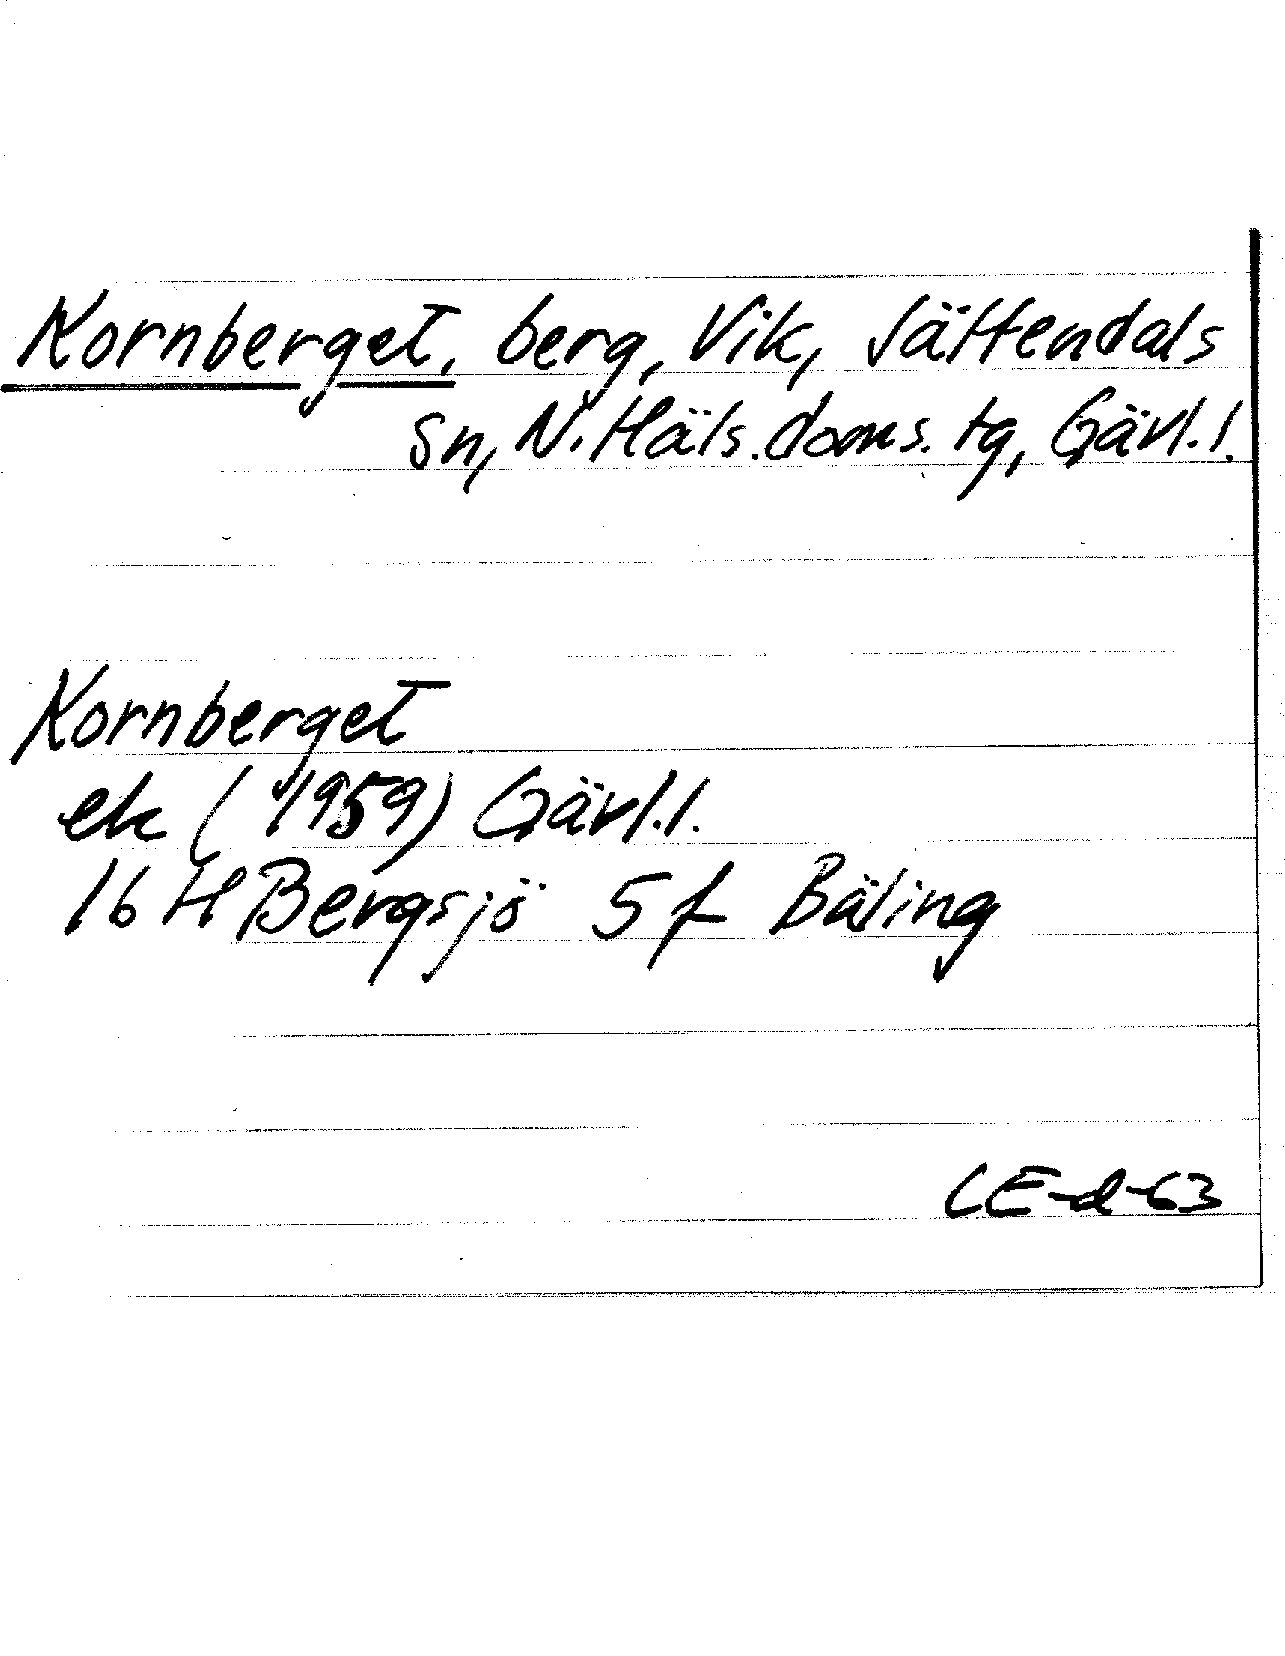 Kornberget, berg, Vik, Jättendals
Sn, N. Häls. doms. tg, Gävl. l.
Kornberget
ek (1959) Gävl. l.
16 H Bergsjö 5 f Bäling
CE-d-63